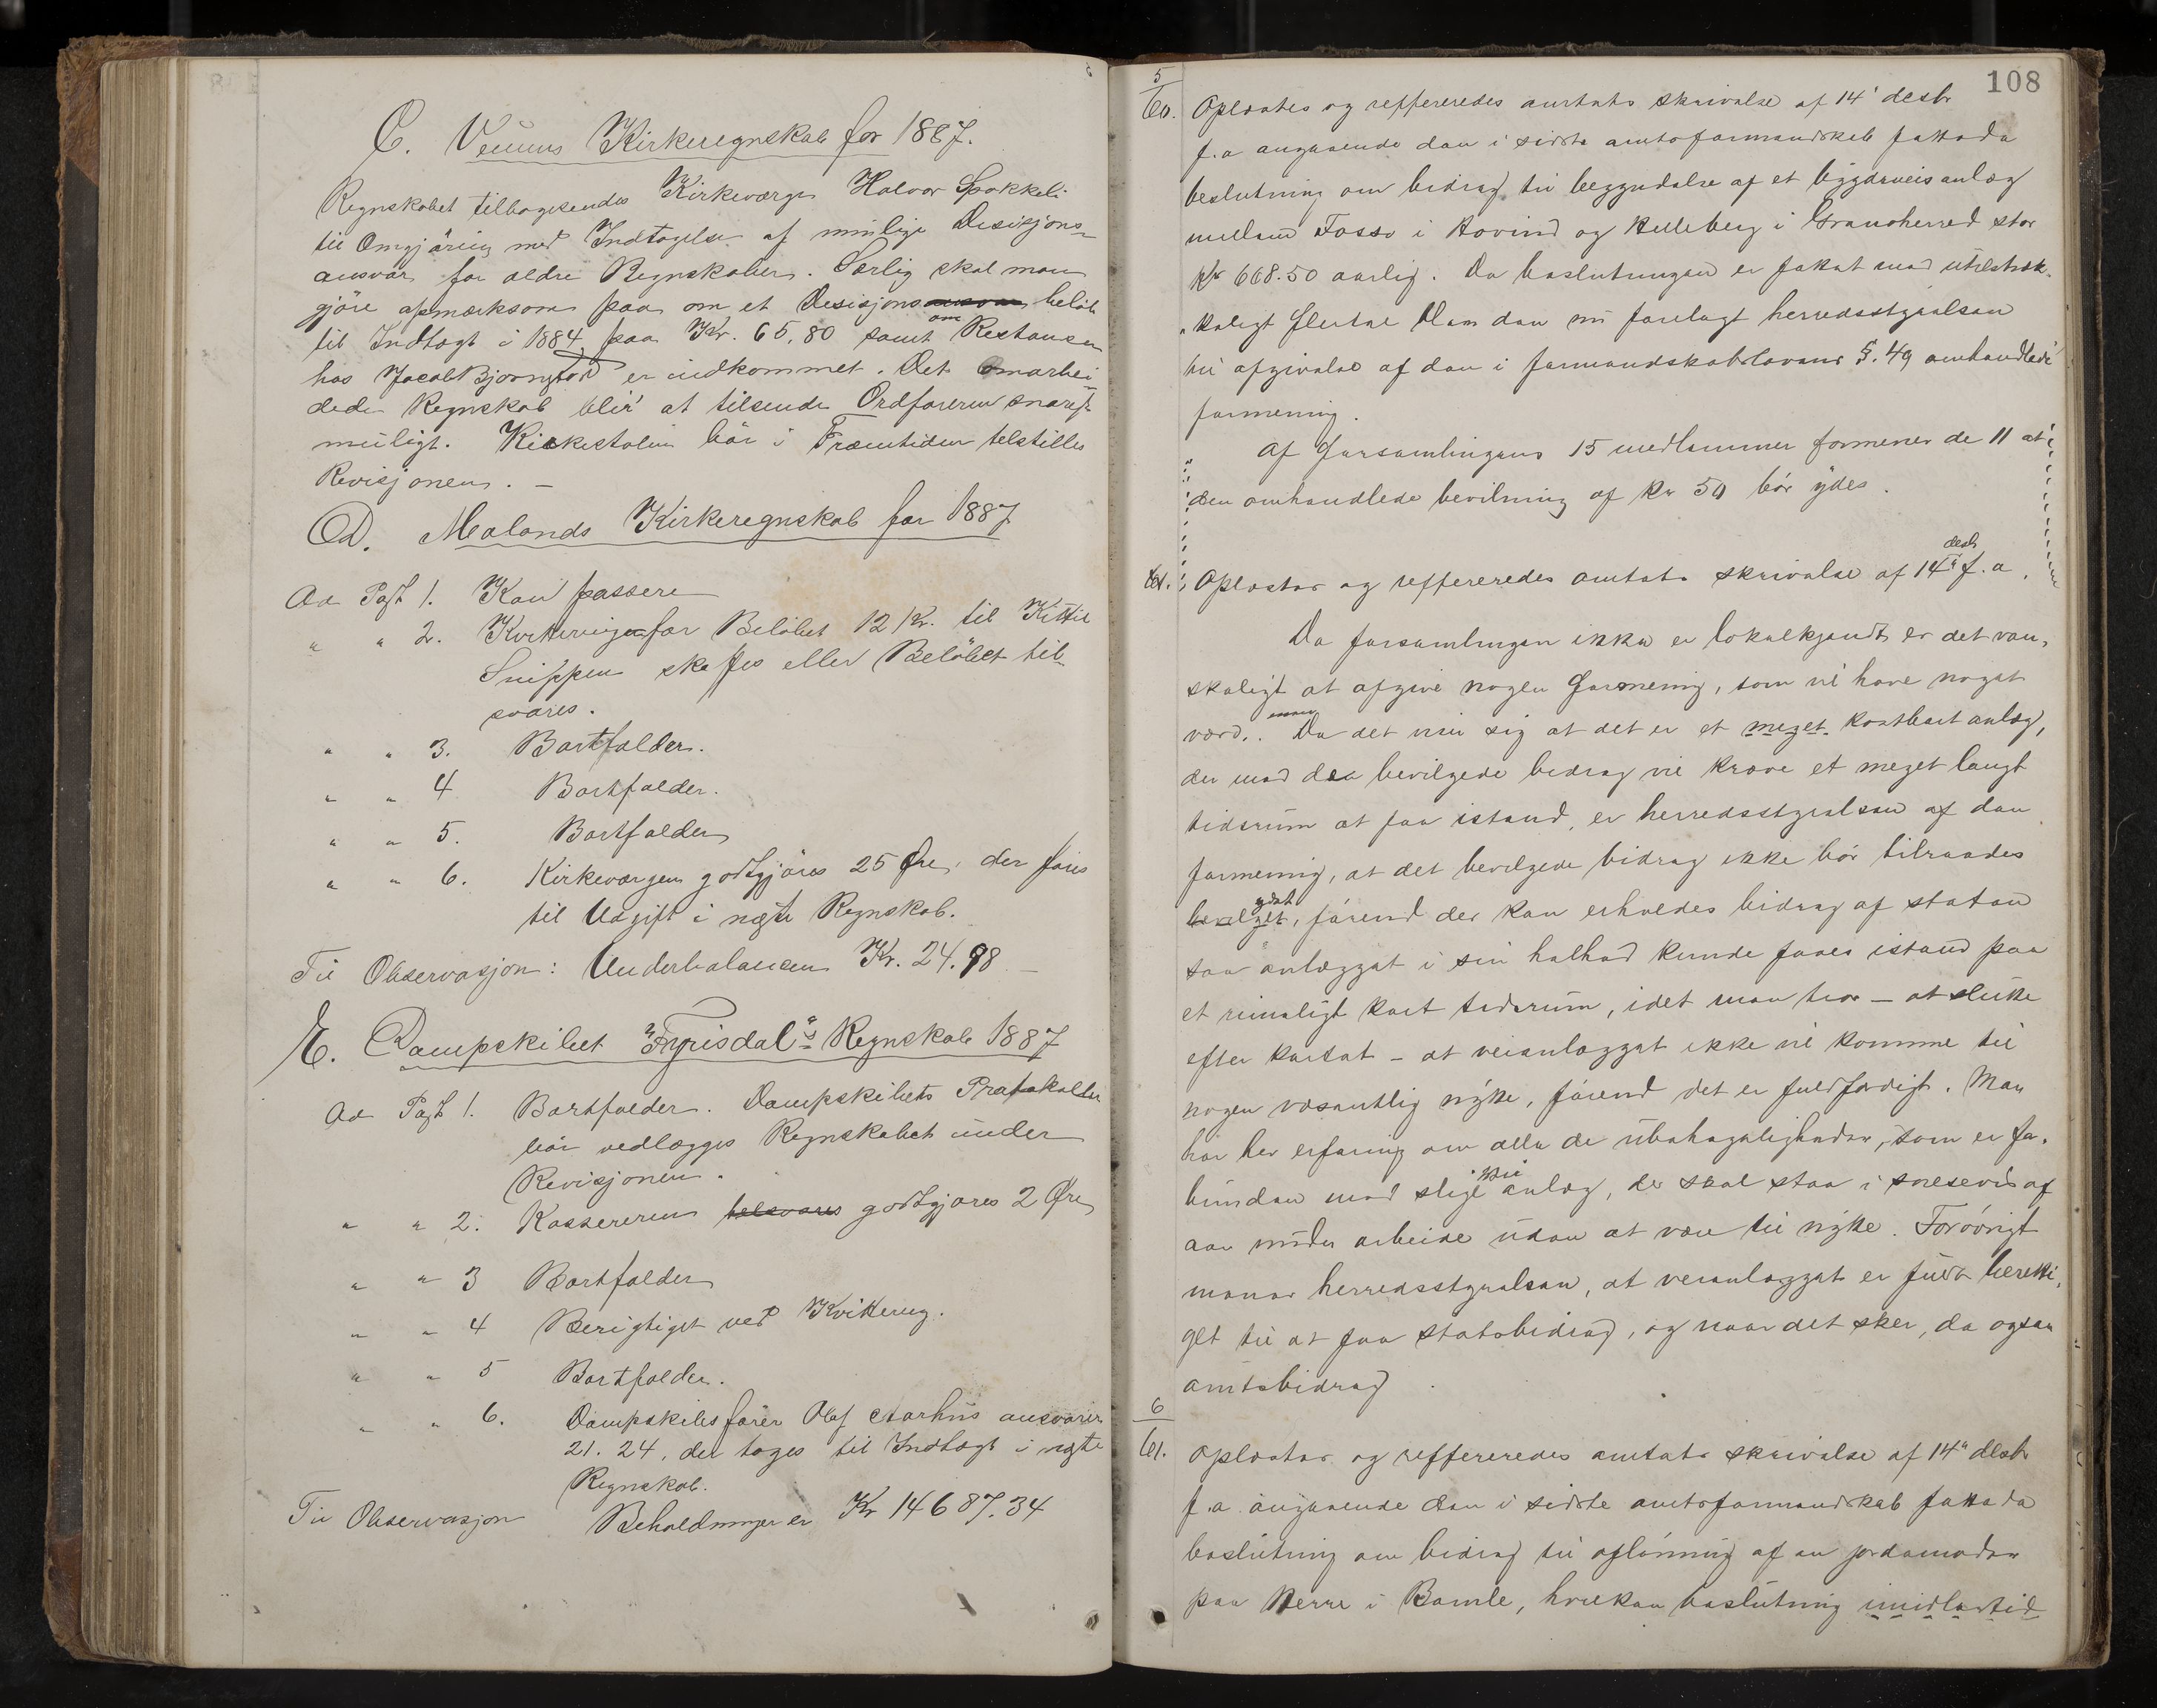 C. Veums Kirkeregnskab for 1887.
Regnskabet tilbagesendes Kirkeværge Halvor Spokkeli
til Omgjöring med Indtagelse af mulige Desisjons-
ansvar for ældre Regnskaber. Særlig skal man
gjöre opmærksom paa om et Desisjons ansvar belöb
til Indtægt i 1884 paa Kr. 65,80 samt om Restansen
hos Jacob Bjoernstad er indkommet. Det omarbei-
dede Regnskab blir at tilsende Ordföreren snarest
muligt. Kirkestolen bör i Fræmtiden telstilles
Revisjonen. –
D. Molands Kirkeregnskab for 1887
Ad Post 1. Kan passere
" " 2. Kvitering for Belöbet 12 Kr. til Kittil
Snippen skaffes eller Belöbet til-
svares.
" " 3. Bortfalder.
" " 4 Bortfalder.
" " 5. Bortfalder
" " 6. Kirkeværgen godtgjöres 25 Øre, der föres
til Udgift i næste Regnskab.
Til Observasjon: Underbalancen Kr. 24.98 –
E. Dampskibet "Fyrisdal"s Regnskab 1887
Ad Post 1. Bortfalder. Dampskibets Protokoller
bör vedlægges Regnskabet under
Revisjonen.
" " 2. Kassereren telsvares godtgjöres 2 Øre
" " 3 Bortfalder
" " 4 Berigtiget ved Kvittering.
" " 5 Bortfalder.
" " 6. Dampskibsförer Olaf Aarhus ansvarer
21. 24, der tages til Indtægt i næste
Regnskab.
Til Observasjon Beholdningen er Kr 14687.34
108
5
60. Oplæstes og reffereredes amtets skrivelse af 14' desbr
f.a angaaende den i sidste amtsformandskab fattede
beslutning om bidrag til begyndelse af et bygdeveisanlæg
mellem Fosso i Hovind og Kulleberg i Granoherred stor
kr 668.50 aarlig. Da beslutningen er fattet med utilstræk-
keligt flertal blev den nu forelagt herredsstyrelsen
til afgivelse af den i formandskabslovens §. 49 omhandlede
formening.
Af Forsamlingens 15 medlemmer formener de 11 at
den omhandlede bevilning af kr 50 bör ydes.
61. Oplæstes og reffereredes amtets skrivelse af 14de desbr f.a.
Da forsamlingen ikke er lokalkjendt er det van-
skeligt at afgive nogen Formening, som vil have noget
værd. Da det viser sig at det er et meget kostbart anlæg,
der med den bevilgede bidrag vil kræve et meget langt
tidsrum at faa istand, er herredsstyrelsen af den
formening, at det bevilgede bidrag ikke bör tilraades
bevilget ydet, förend der kan erholdes bidrag af staten
saa anlægget i sin helhed kunde faaes istand paa
et rimeligt kort tidsrum, idet man tror – at slutte
efter kartet – at veianlægget ikke vil komme til
nogen væsentlig nytte, förend det er fuldfærdigt. Man
har her erfaring om alle de übehageligheder, som er for-
bunden med slige vei anlæg, der skal staa i snesevis af
aar under arbeide uden at være til nytte. Forövrigt
mener herredsstyrelsen, at veianlægget er fuldt beretti-
get til at faa statsbidrag, og naar det sker, da ogsaa
amtsbidrag.
6
61. Oplæstes og reffereredes amtets skrivelse af 14" desbr
f.a angaaende den i sidste amtsformandskab fattede
beslutning om bidrag til aflönning af en jordemoder
paa Herre i Bamle, hvilken beslutning imidlertid